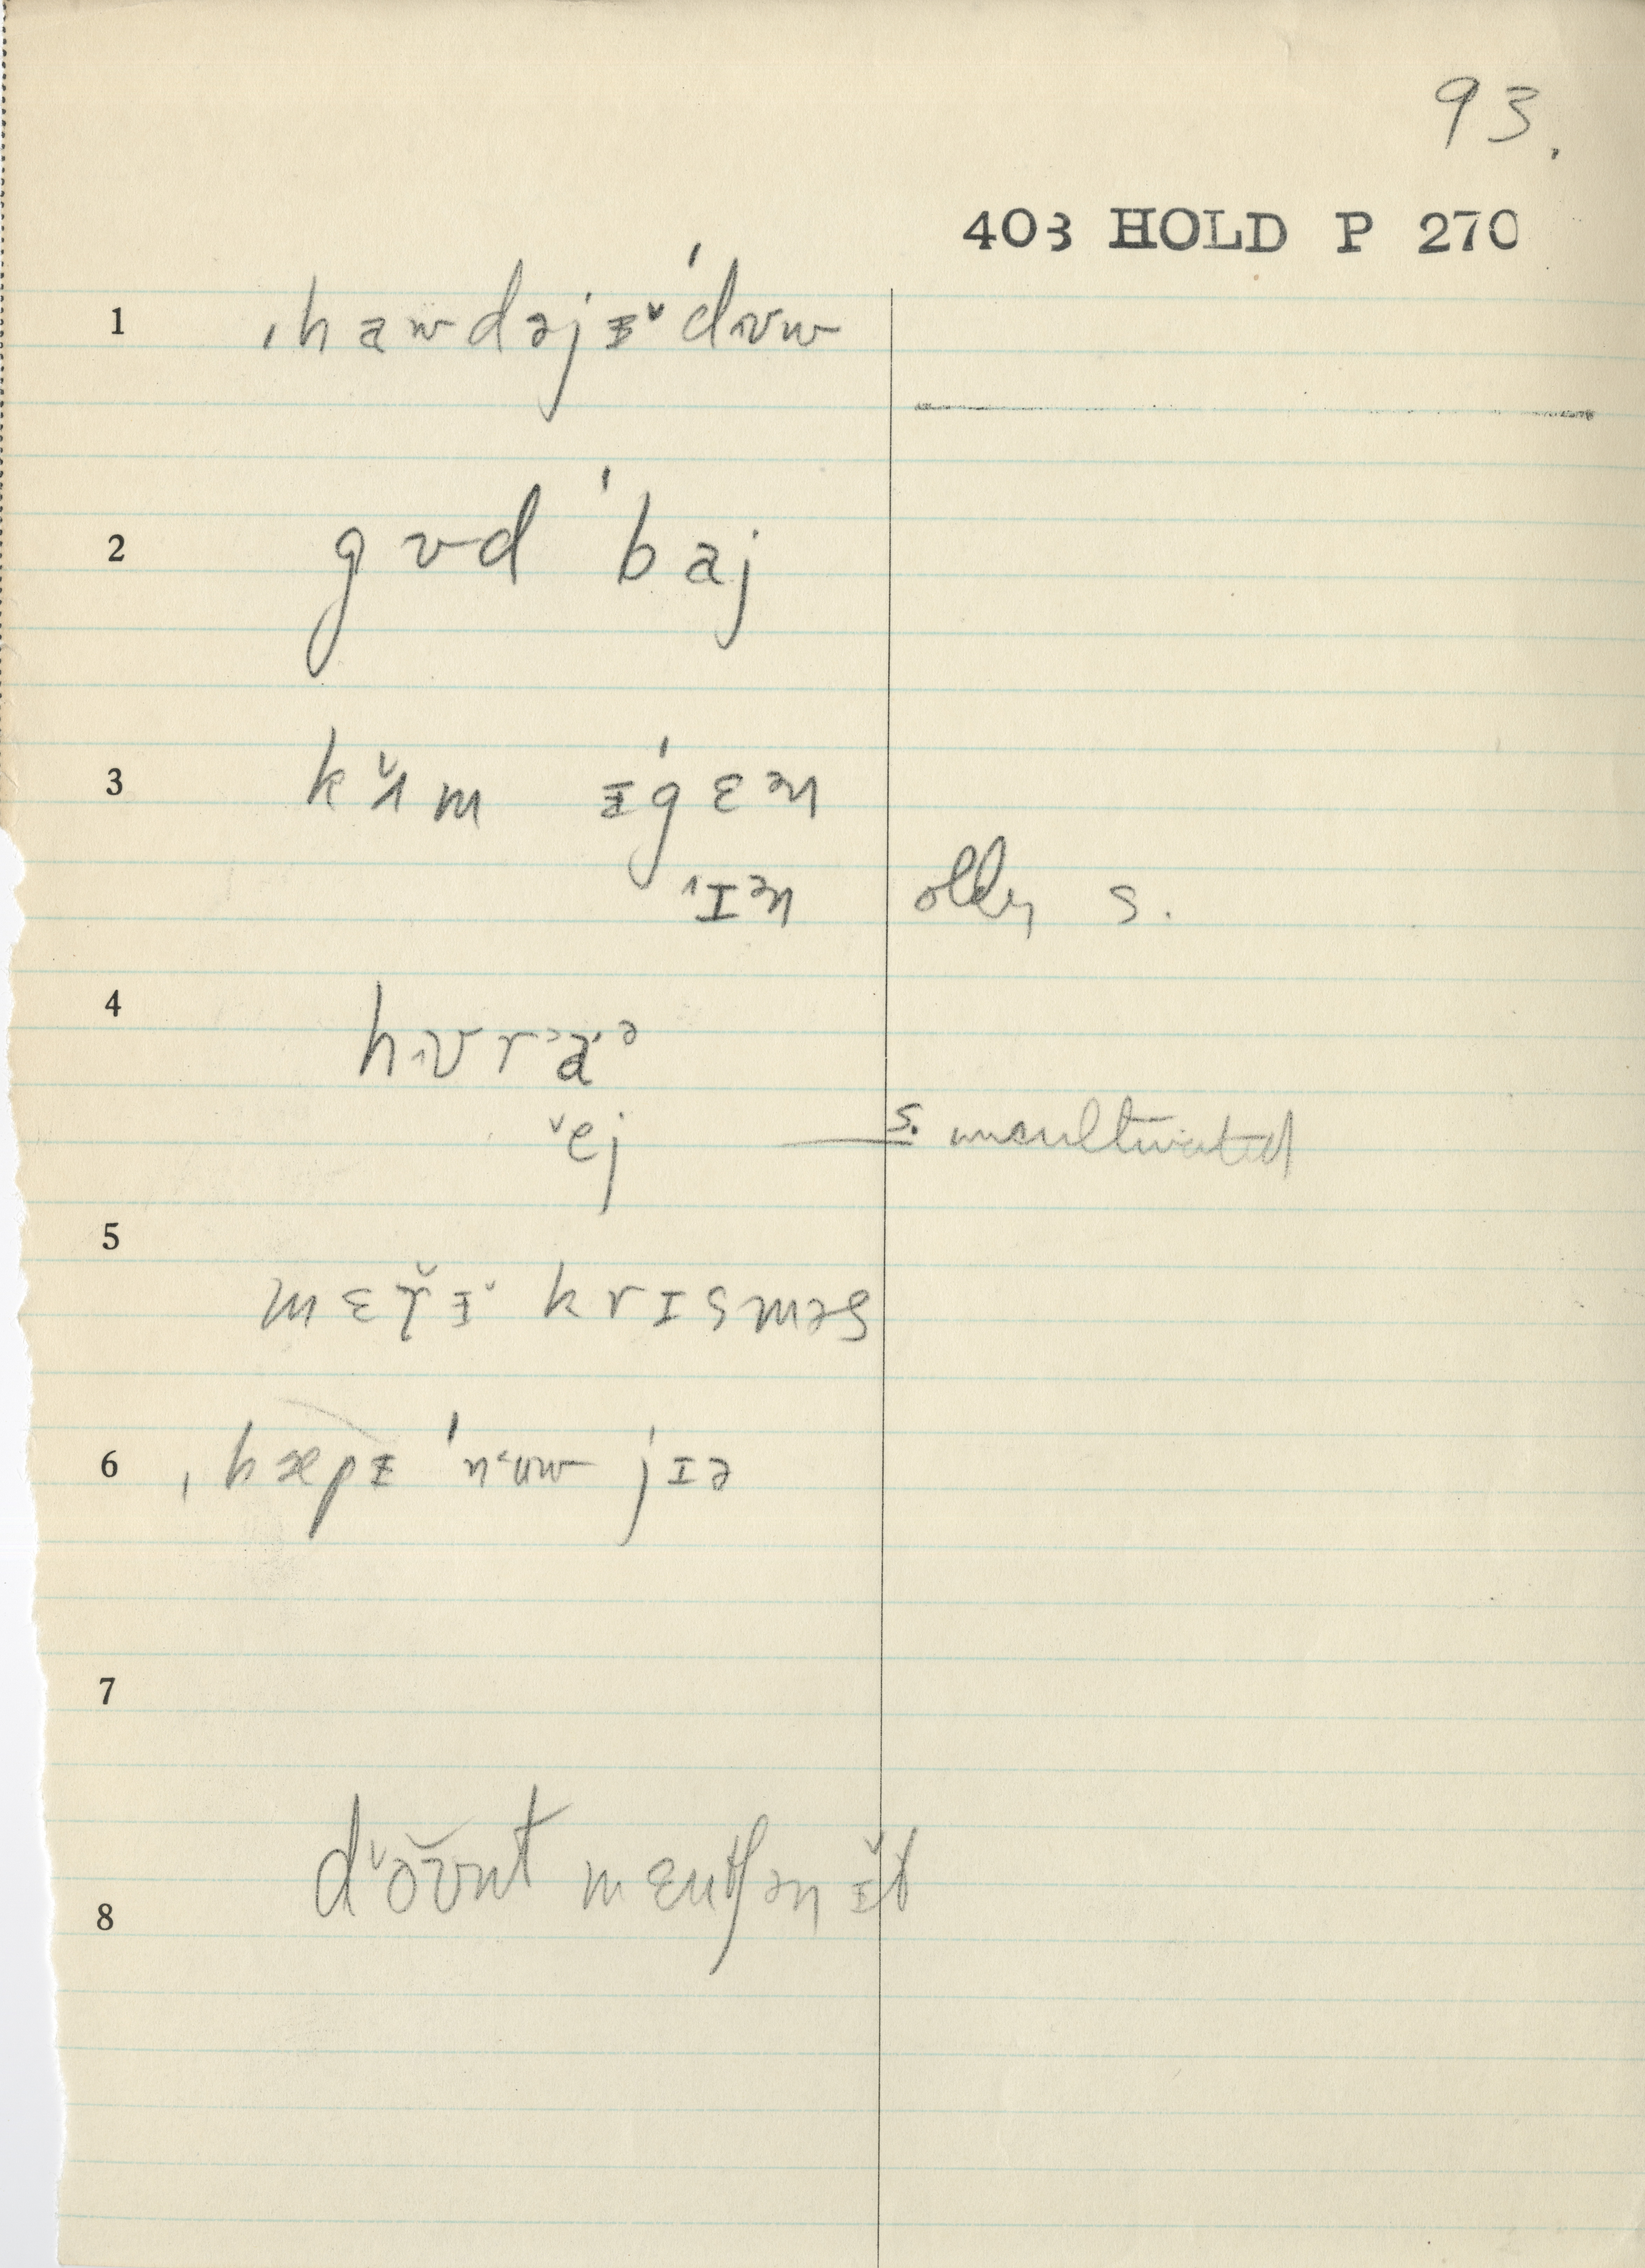 93.
403 HOLD P 270
1 ˌhawdəjɪ̵ˇˈdʊw
2 gʊd ˈbaj
3 kˇʌm ɪ̵ˈgɛən
ˈɪən older s.
4 hʊrˈaˑə
ˇej s. uncultivated
5 mɛřɪ̵ˇ krɪsməs
6 ˌhæpɪ̵ ˈnˑuw jɪə
7
8 dˇəʊ̌nt mɛntʃən ɪ̵̌t